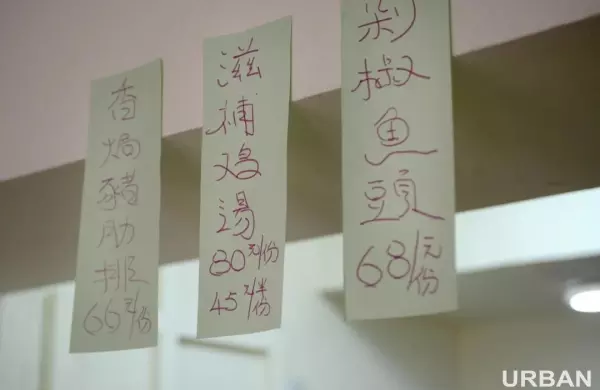 香焗豬肋排
66元/份
滋補鸡湯
80元/份
45元/半份
剁椒鱼頭
68元/份
URBAN